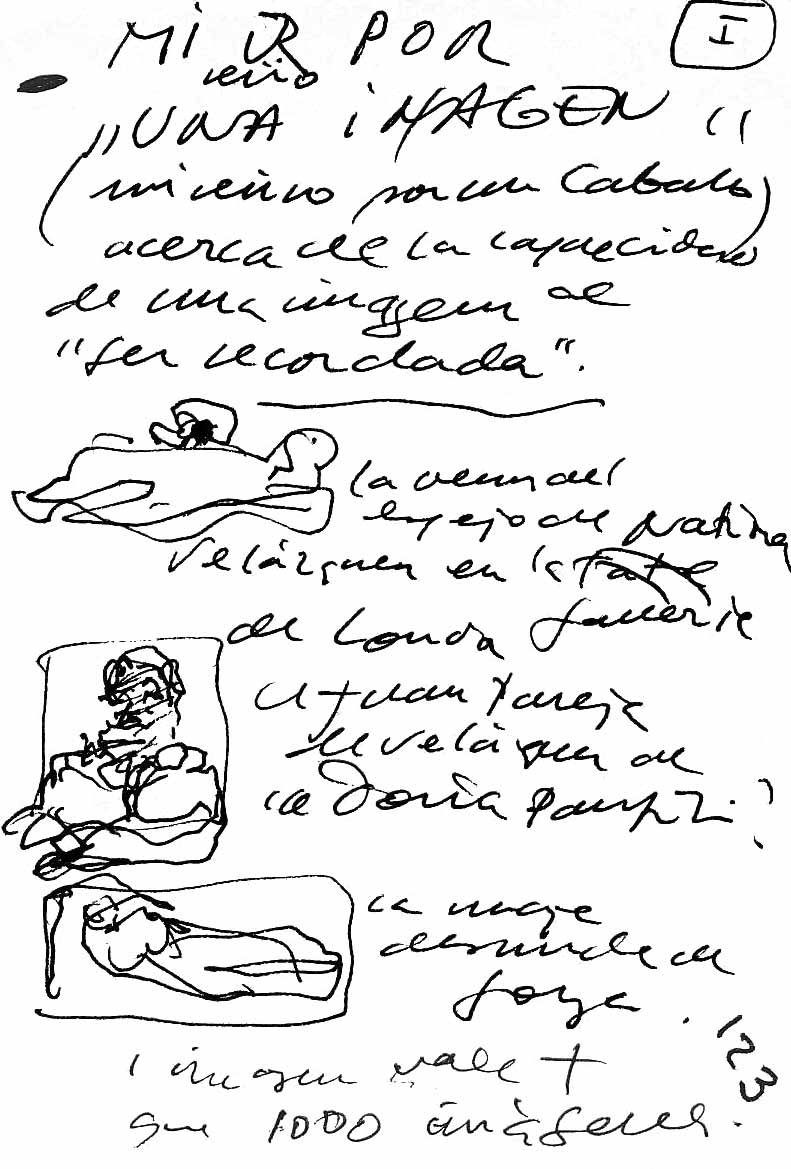 MI R POR
I
reino
„UNA iMAGEN"
(mi reino por un Caballo)
acerca de la capacidad
de una imagen de
"ser recordada".
la venus del
espejo de
Velázquez en la Tate
de Londa Gallerie
el Juan Pareja
el velázquez de
la Doria Pamphili?
la maja
desnuda de
Goya.
123
1 imagen vale +
que 1000 imágenes.